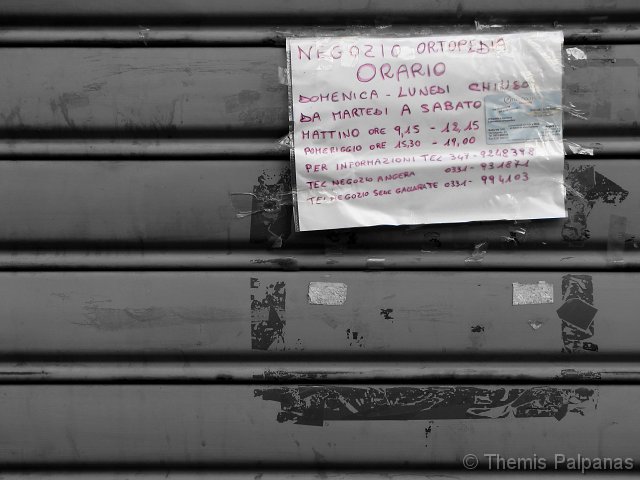 NEGOZIO ORTOPEDIA
ORARIO
DOMENICA - LUNEDI CHIUSO
DA MARTEDI A SABATO
MATTINO ORE 9,15 - 12,15
POMERIGGIO ORE 15,30 - 19,00
PER INFORMAZIONI TEL 347-9248398
TEL NEGOZIO ANGERA 0331-931871
TEL NEGOZIO SEDE GALLARATE 0331-994103
© Themis Palpanas